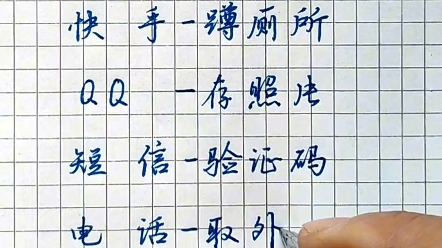 快手-蹲厕所
QQ-存照片
短信-验证码
电话-取外